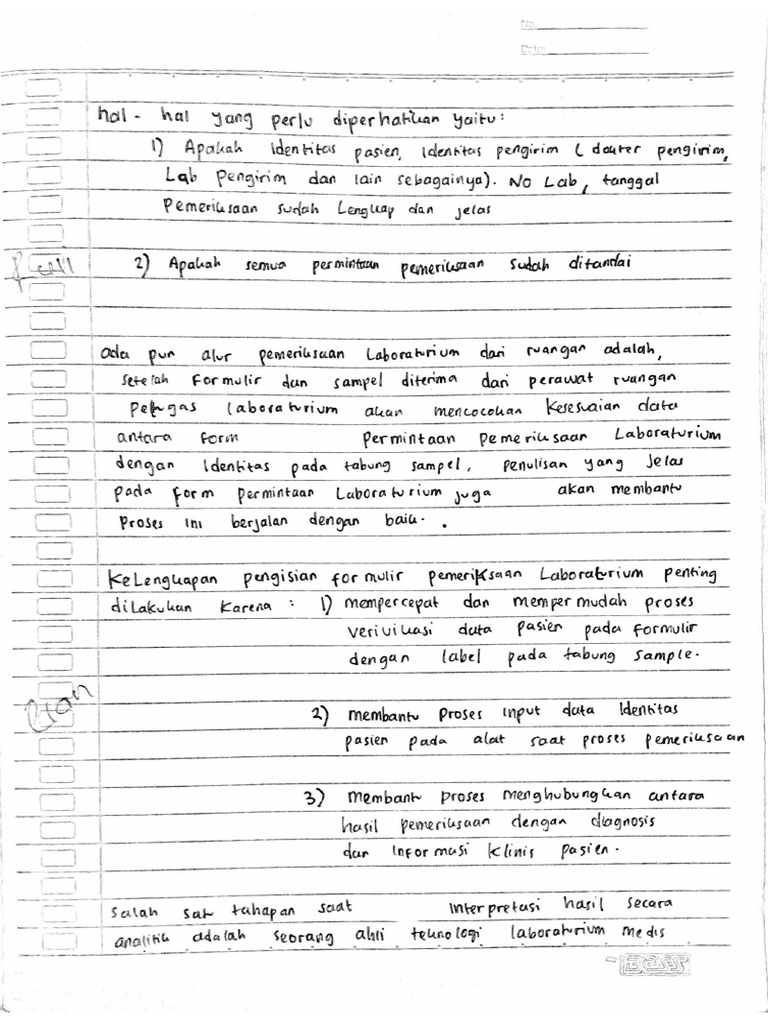 No.
Date
hal - hal yang perlu diperhatikan yaitu:
1) Apakah Identitas pasien, Identitas pengirim ( dokter pengirim,
Lab Pengirim dan lain sebagainya). No Lab, tanggal
Pemeriksaan sudah Lengkap dan jelas
2) Apakah semua permintaan pemeriksaan sudah ditandai
ada pun alur pemeriksaan Laboratorium dari ruangan adalah,
setelah formulir dan sampel diterima dari perawat ruangan
petugas laboratorium akan mencocokan kesesuaian data
antara form permintaan pemeriksaan Laboraturium
dengan Identitas pada tabung sampel, penulisan yang jelas
pada form permintaan Laboratorium juga akan membantu
proses ini berjalan dengan baik.
KeLengkapan pengisian formulir pemeriksaan Laboraturium penting
dilakukan karena : 1) mempercepat dan mempermudah proses
verivikasi data pasien pada formulir
dengan label pada tabung sample.
2) membantu proses input data Identitas
pasien pada alat saat proses pemeriksaan
3) membantu proses menghubungkan antara
hasil pemeriksaan dengan diagnosis
dan informasi klinis pasien.
salah satu tahapan saat interpretasi hasil secara
analitik adalah seorang ahli teknologi laboratorium medis